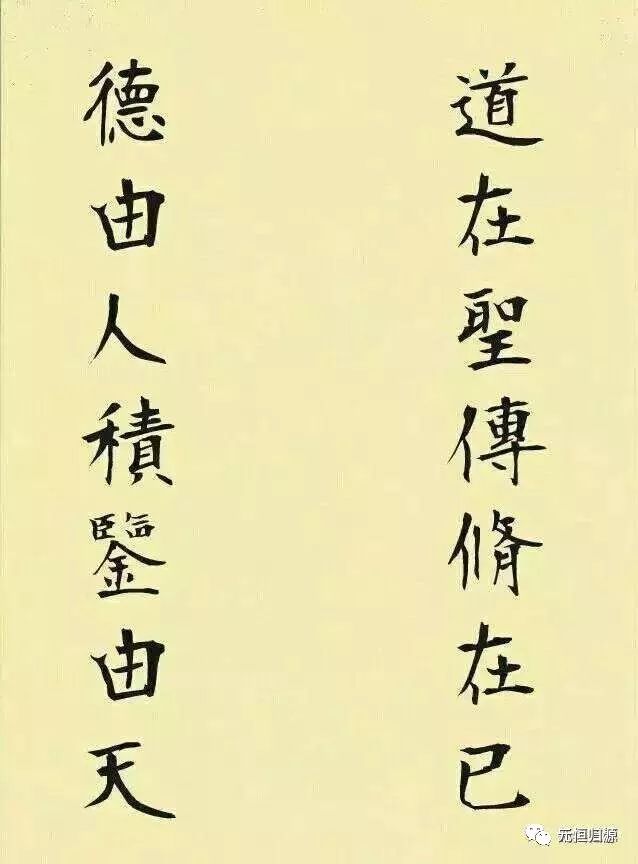 道在聖傳脩在己
德由人積鑒由天
元恒归源